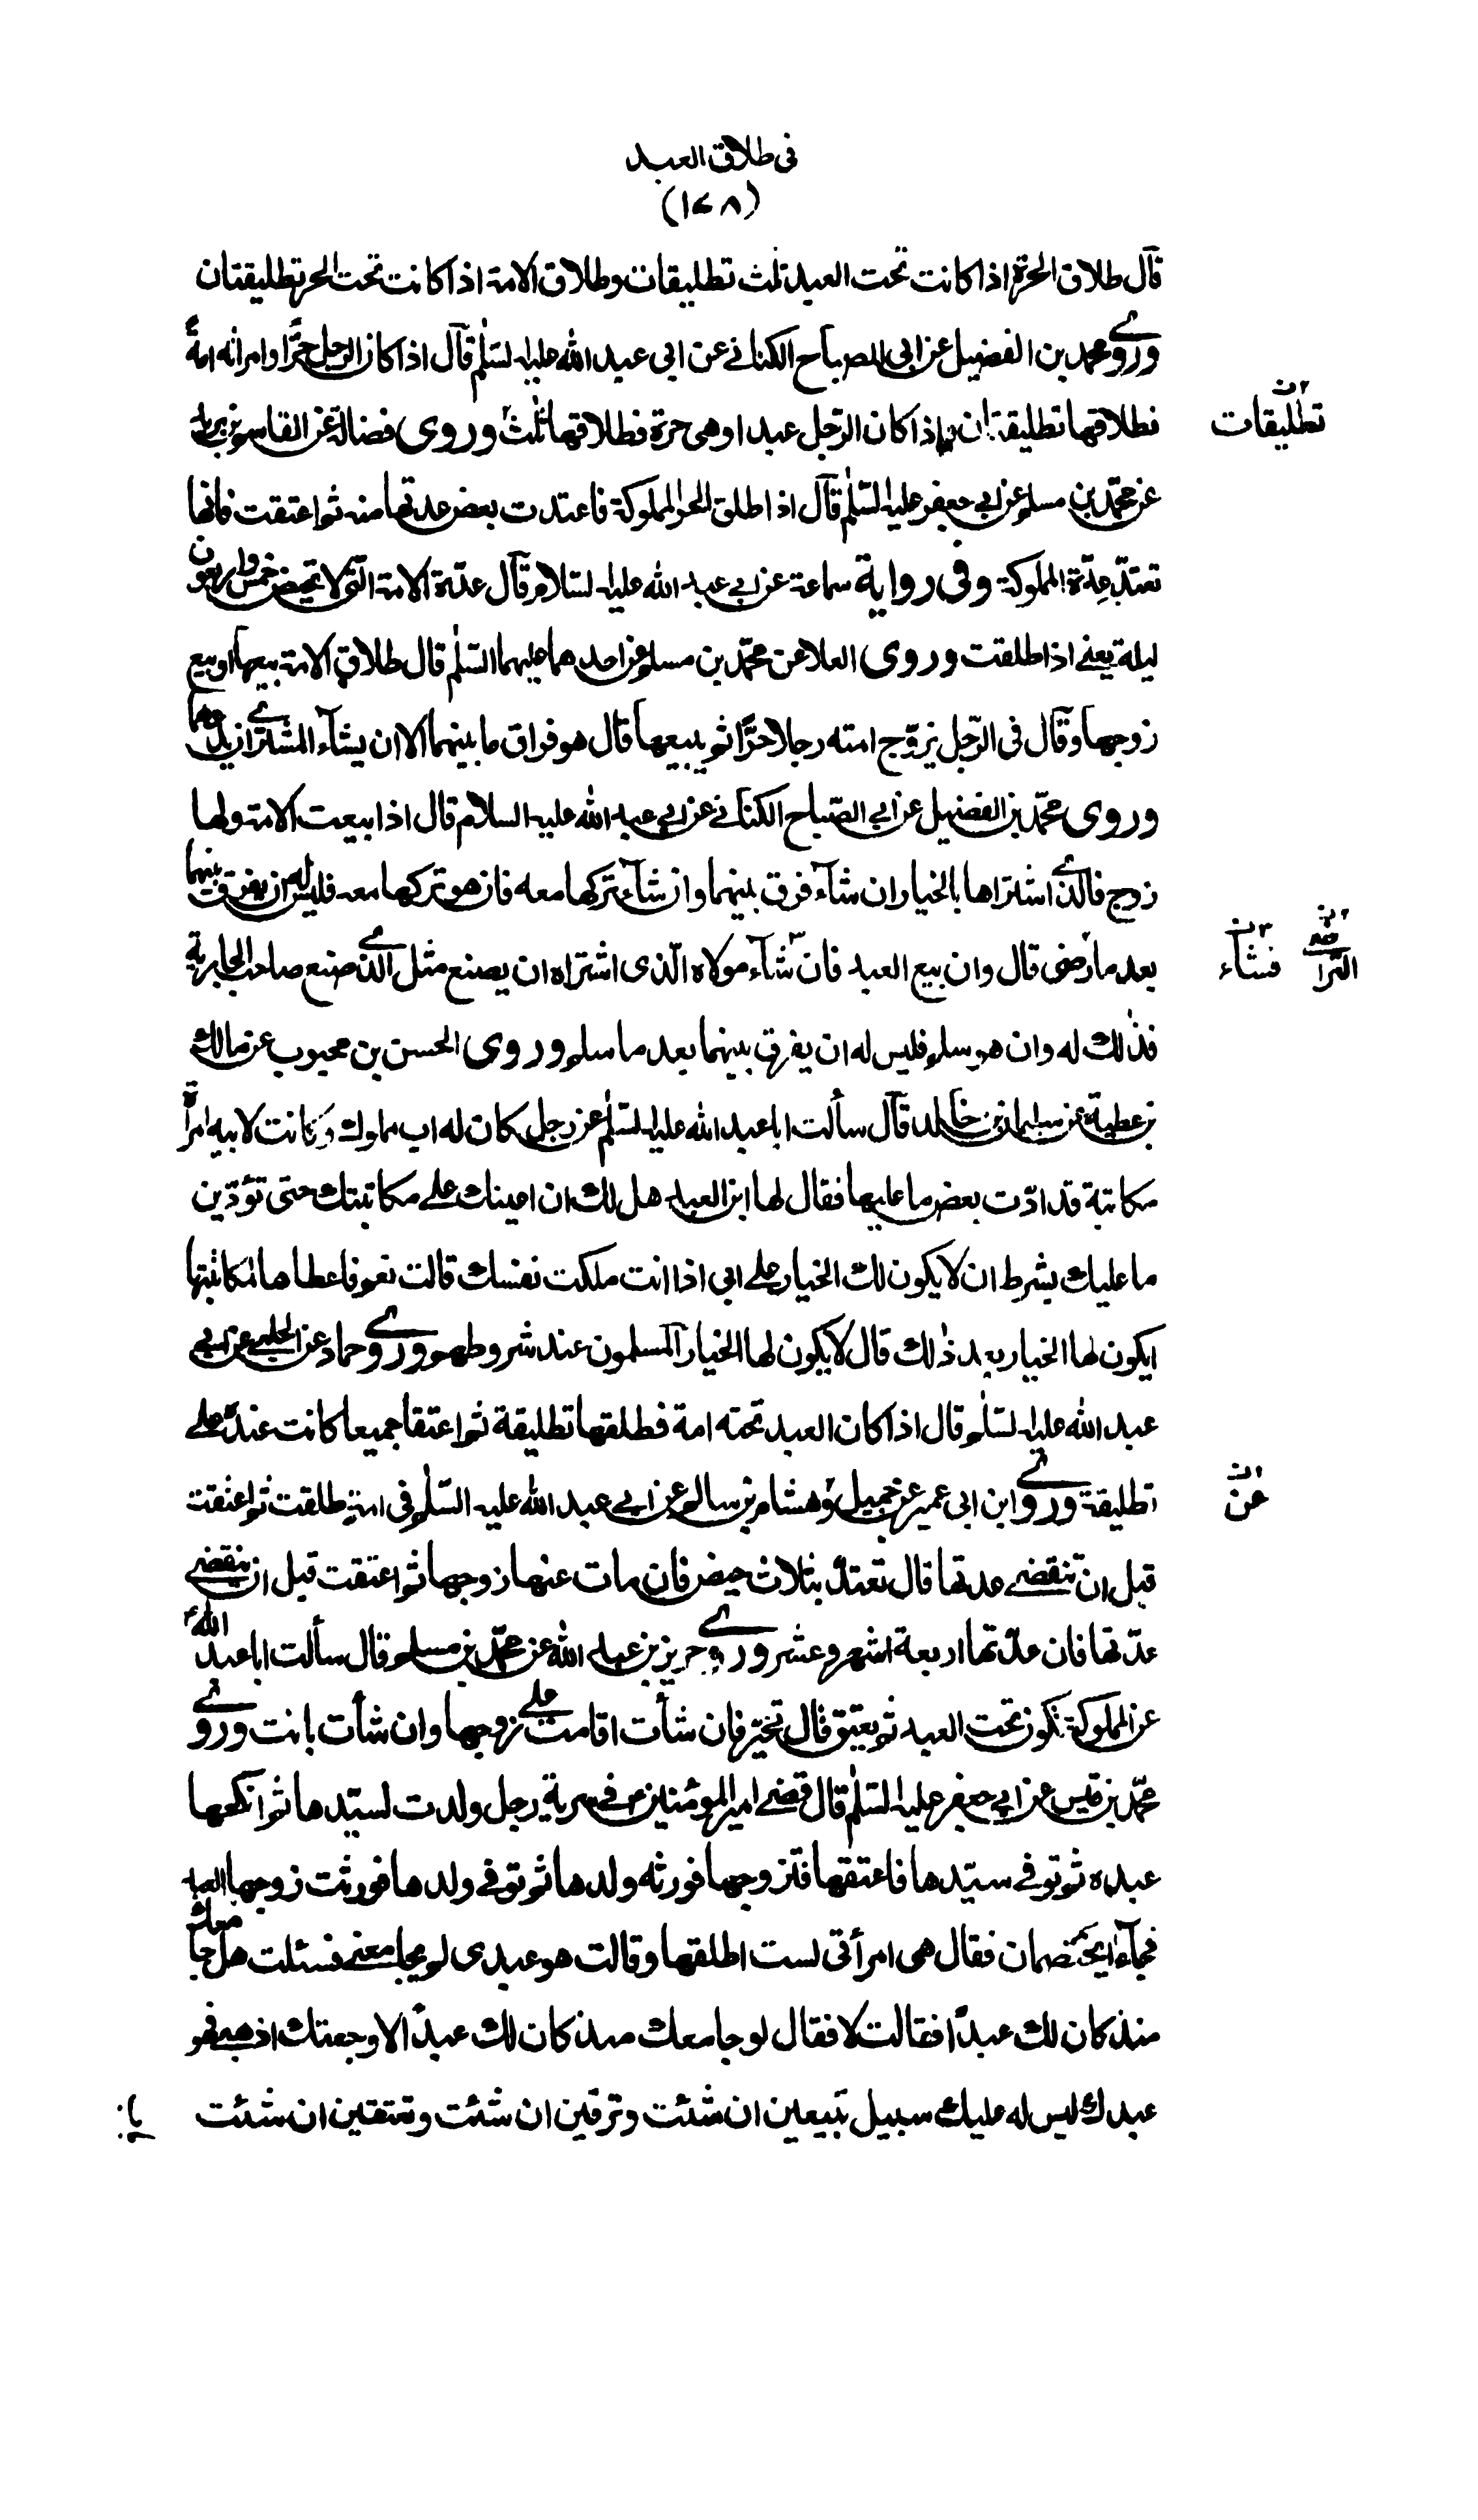 في طلاق العبد
(١٧٨)
قال طلاق الحرة اذا كانت تحت العبد ثلث تطليقات وطلاق الامة اذا كانت تحت الحر تطليقتان
وروى محمد بن الفضيل عن ابي الصباح الكناني عن ابي عبد الله عليه السلم قال اذا كان الرجل حرًّا وامراته امةً
فطلاقها تطليقتان واذا كان الرجل عبدا وهي حرة فطلاقها ثلث وروى فضالة عن القاسم بن بريد
عن محمد بن مسلم عن ابي جعفر عليه السلم قال اذا طلق الحر المملوكة فاعتدت بعض عدتها منه ثم اعتقت فانها
تعتد عدة المملوكة وفي رواية سماعة عن ابي عبد الله عليه السلام قال عدة الامة التي لا تحيض خمس واربعون
ليلة يعني اذا طلقت وروى العلا عن محمد بن مسلم عن احدهما عليهما السلم قال طلاق الامة بيعها او بيع
زوجها وقال في الرجل يزوج امته رجلا حرًّا ثم يبيعها قال هو فراق ما بينهما الا ان يشآء المشترى ان يدعهما
وروى محمد بن الفضيل عن ابي الصباح الكناني عن ابي عبد الله عليه السلام قال اذا بيعت الامة ولها
زوج فالذى اشتراها بالخيار ان شآء فرق بينهما وان شآء تركها معه فان هو تركها معه فليس له ان يفرق بينهما
بعد ما رضي قال وان بيع العبد فان شآء مولاه الذى اشتراه ان يصنع مثل الذى صنع صاحب الجارية
فذلك له وان هو سلم فليس له ان يفرق بينهما بعد ما سلم وروى الحسن بن محبوب عن مالك
بن عطية عن سليمان بن خالد قال سألت ابا عبد الله عليه السلم عن رجل كان له اب مملوك وكانت لابيه امرأة
مكاتبة قد ادت بعض ما عليها فقال لها ابن العبد هل لك ان اعينك على مكاتبتك حتى تؤدين
ما عليك بشرط ان لا يكون لك الخيار على ابي اذا انت ملكت نفسك قالت نعم فاعطاها مكاتبتها
ايكون لها الخيار بعد ذلك قال لا يكون لها الخيار المسلمون عند شروطهم وروى حماد عن الحلبي عن ابي
عبد الله عليه السلم قال اذا كان العبد تحته امة فطلقها تطليقة ثم اعتقا جميعا كانت عنده على
تطليقة وروى ابن ابي عمير عن جميل وهشام بن سالم عن ابي عبد الله عليه السلم في امة طلقت ثم اعتقت
قبل ان تنقضي عدتها قال تعتد بثلاث حيض فان مات عنها زوجها ثم اعتقت قبل ان تنقضي
عدتها فان عدتها اربعة اشهر وعشر وروى حريز بن عبد الله عن محمد بن مسلم قال سألت ابا عبد الله ع
عن المملوكة تكون تحت العبد ثم يعتق قال تخير فان شأت اقامت على زوجها وان شأت بانت وروى
محمد بن قيس عن ابي جعفر عليه السلم قال قضى امير المؤمنين ع في سرية رجل ولدت لسيدها ثم انكحها
عبده ثم توفي سيدها فاعتقها فتزوجها فورثه ولدها ثم توفي ولدها فورثت زوجها العبد
فجآءا يختصمان فقال هي امرأتي لست اطلقها وقالت هو عبدى لم يجامعني فسئلت هل جامعك
منذ كان لك عبدًا فقالت لا فقال لو جامعك منذ كان لك عبدًا لاوجعتك اذهبي فهو
عبدك ليس له عليك سبيل تبيعين ان شئت وترقين ان شئت وتعتقين ان شئت
تطليقات
فشاء
عن
باب